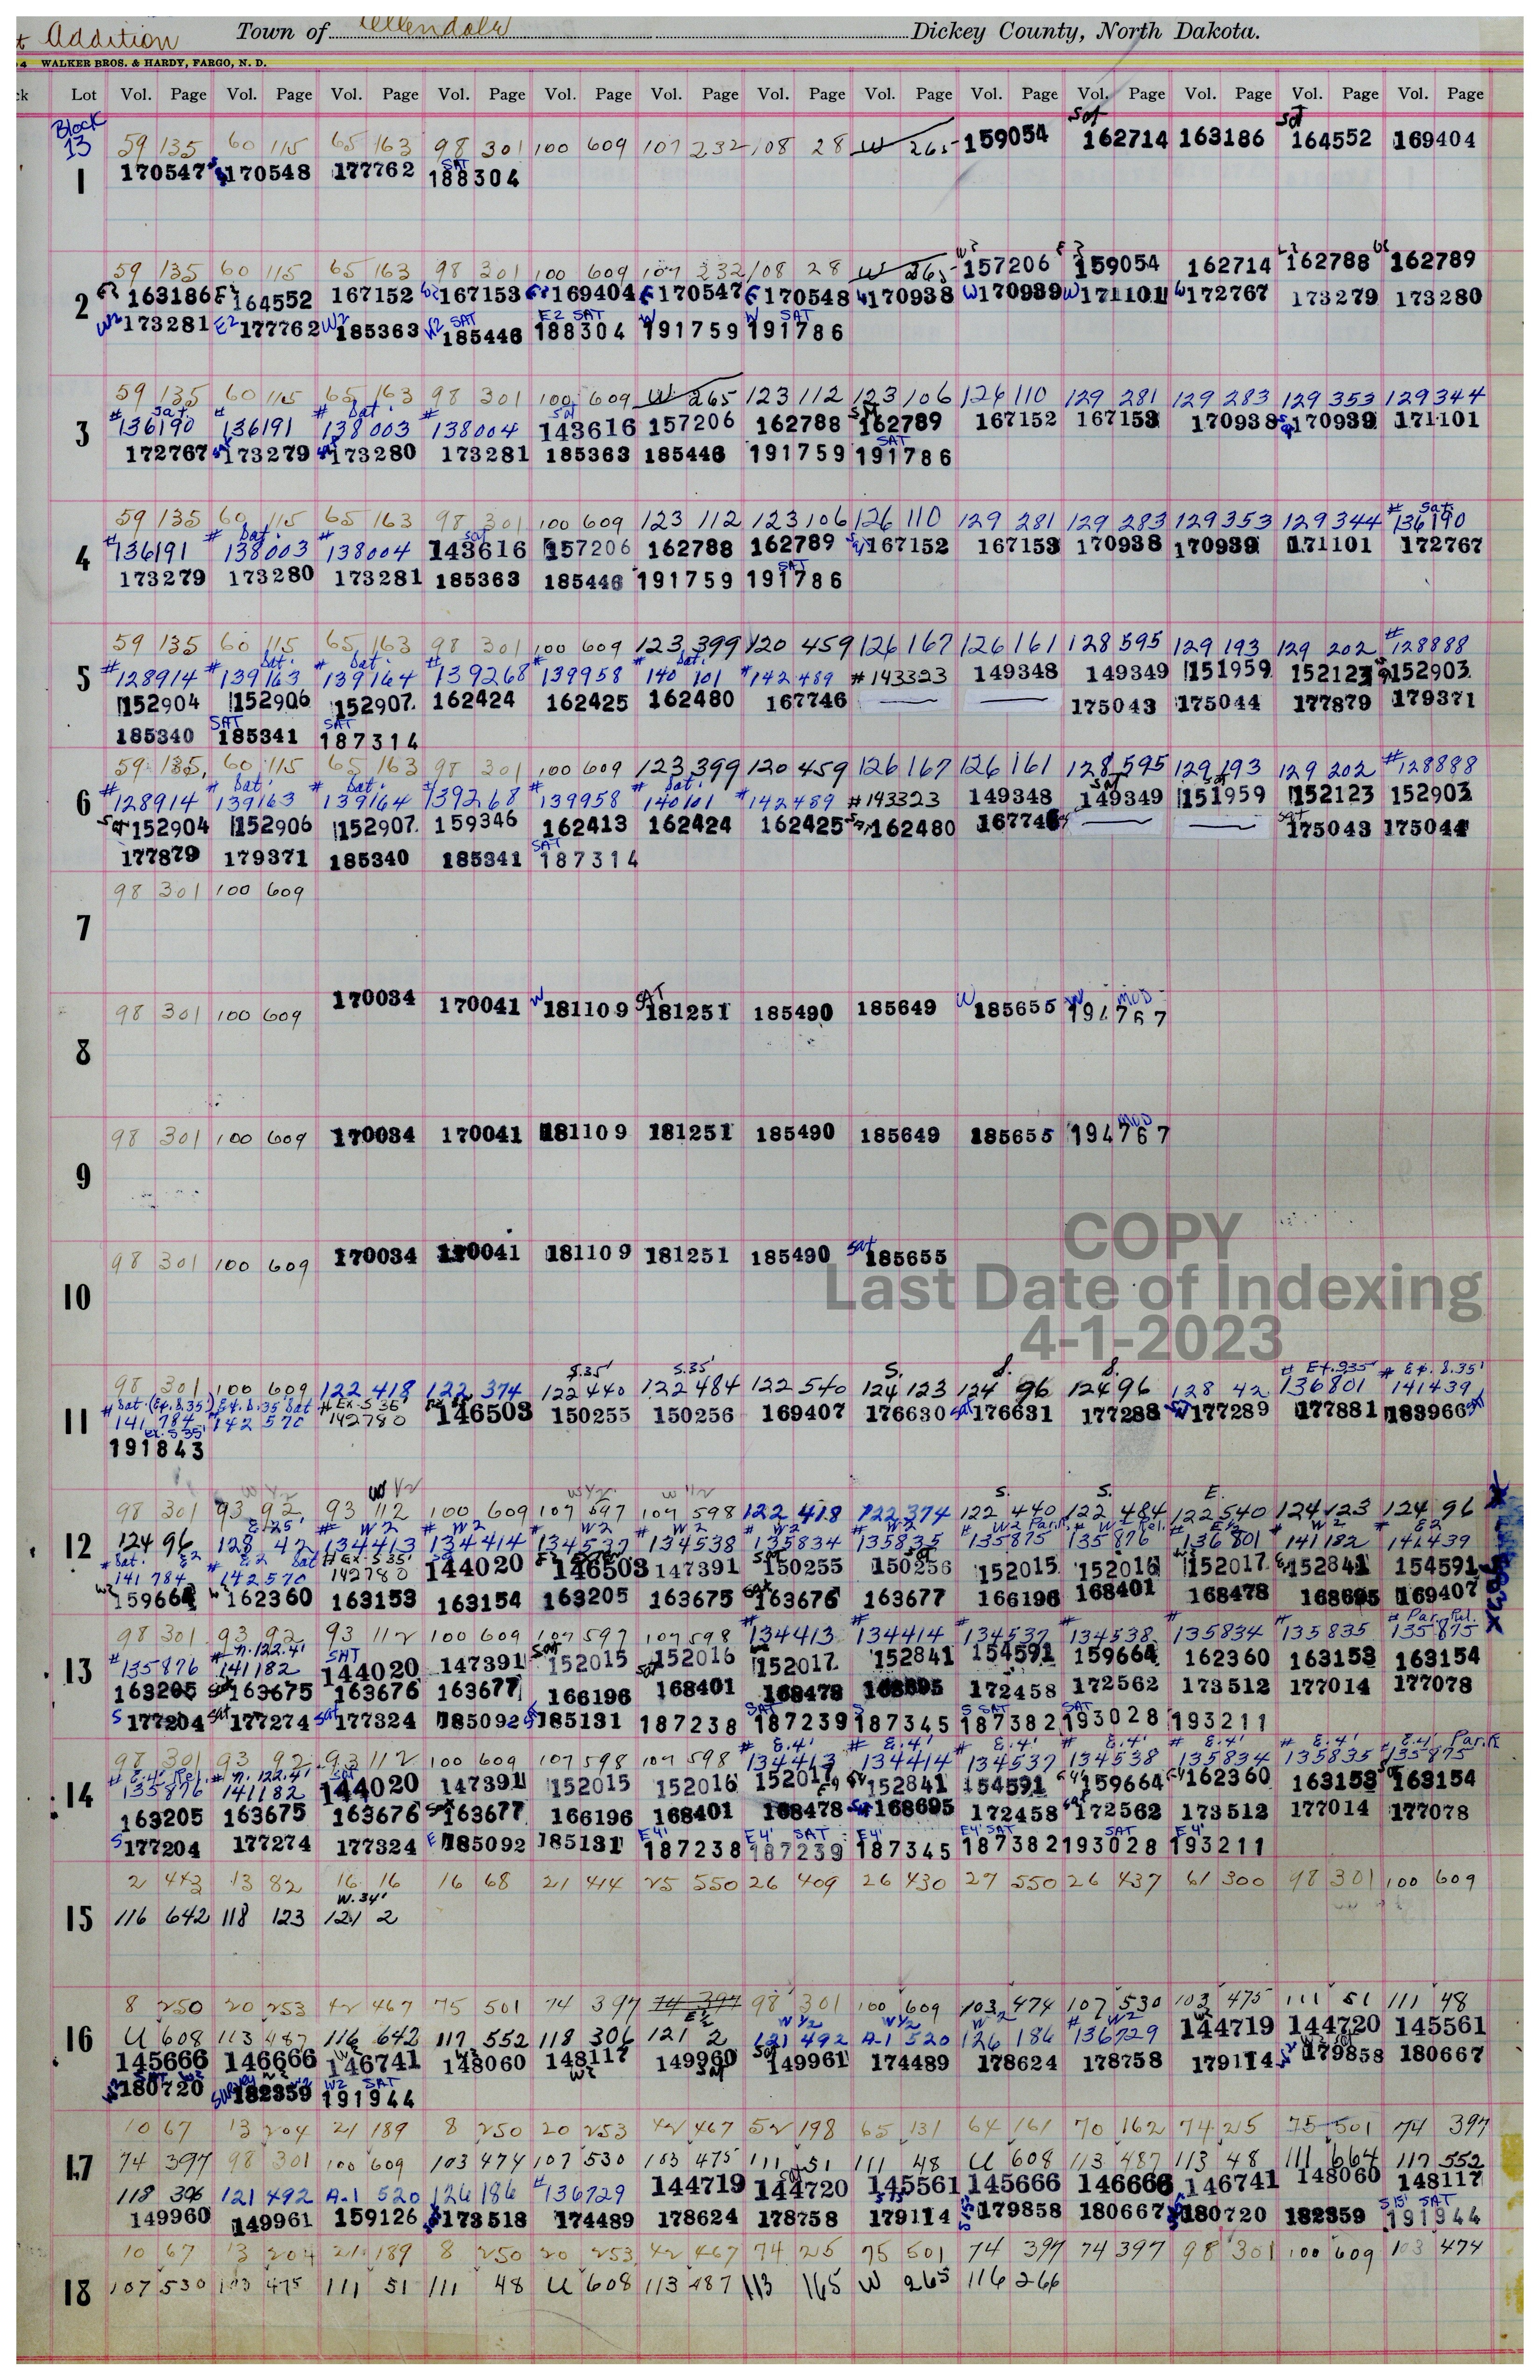 t Addition Town of Ellendale Dickey County, North Dakota.
4 WALKER BROS. & HARDY, FARGO, N. D.
ck Lot Vol. Page Vol. Page Vol. Page Vol. Page Vol. Page Vol. Page Vol. Page Vol. Page Vol. Page Vol. Page Vol. Page Vol. Page Vol. Page
Block 13
Sat Sat
59 135 60 115 65 163 98 301 100 609 107 232 108 28 W 265 159054 162714 163186 164552 169404
1 170547 170548 177762 SAT 188304
59 135 60 115 65 163 98 301 100 609 107 232 108 28 W 265 157206 159054 162714 162788 162789
2 163186 164552 167152 167153 169404 170547 170548 170938 170939 171101 172767 173279 173280
W2 173281 E2 177762 W2 185363 W2 SAT 185446 E2 SAT 188304 W 191759 W SAT 191786
59 135 60 115 65 163 98 301 100 609 W 265 123 112 123 106 126 110 129 281 129 283 129 353 129 344
3 # Sat. 136190 # 136191 # Sat. 138003 # 138004 Sat 143616 157206 162788 162789 167152 167153 170938 170939 171101
172767 173279 173280 173281 185363 185446 191759 SAT 191786
59 135 60 115 65 163 98 301 100 609 123 112 123 106 126 110 129 281 129 283 129 353 129 344 # Sat. 136190
4 # 136191 Sat. 138003 # 138004 Sat 143616 157206 162788 162789 167152 167153 170938 170939 171101 172767
173279 173280 173281 185363 185446 191759 SAT 191786
59 135 60 115 65 163 98 301 100 609 123 399 120 459 126 167 126 161 128 595 129 193 129 202 # 128888
5 # 128914 # Sat. 139163 # Sat. 139164 # 139268 # 139958 # Sat. 140101 # 142489 # 143323 149348 149349 151959 152123 152903
152904 152906 152907 162424 162425 162480 167746 — — 175043 175044 177879 179371
185340 SAT 185341 SAT 187314
59 135 60 115 65 163 98 301 100 609 123 399 120 459 126 167 126 161 128 595 129 193 129 202 # 128888
6 # 128914 # Sat. 139163 # Sat. 139164 # 139268 # 139958 # Sat. 140101 # 142489 # 143323 149348 Sat 149349 151959 152123 152903
Sat 152904 152906 152907 159346 162413 162424 162425 162480 167746 — — Sat 175043 175044
177879 179371 185340 185341 SAT 187314
98 301 100 609
7
98 301 100 609 170034 170041 W 181109 SAT 181251 185490 185649 W 185655 W MOD 194767
8
98 301 100 609 170034 170041 181109 181251 185490 185649 185655 MOD 194767
9
98 301 100 609 170034 170041 181109 181251 185490 Sat 185655
10
COPY
Last Date of Indexing
4-1-2023
S.35' S.35' S. S. S. # Ex.S35' # Ex. S.35'
98 301 100 609 122 418 122 374 122 440 122 484 122 540 124 123 124 96 124 96 128 42 136801 141439
11 # Sat. (Ex. S.35') 141784 # Ex. S.35 Sat 142570 # Ex. S 35' 142780 146503 150255 150256 169407 176630 Sat 176631 177288 177289 177881 183966
Ex. S 35' 191843
W 1/2 W 1/2 W 1/2 W 1/2 S. S. E.
98 301 93 92 93 112 100 609 107 597 107 598 122 418 122 374 122 440 122 484 122 540 124 123 124 96
12 124 96 E.25' 128 42 # W2 134413 # W2 134414 # W2 134537 # W2 134538 # W2 135834 # W2 135835 # W2 Par.R. 135875 # W2 Rel. 135876 # E 1/2 136801 # W2 141182 # E2 141439
# Sat. E2 141784 E2 Sat 142570 # Ex. S 35' 142780 144020 146503 147391 150255 150256 152015 152016 152017 152841 154591
W2 159664 162360 163153 163154 163205 163675 Sat 163676 163677 166196 168401 168478 168695 169407
98 301 93 92 93 112 100 609 107 597 107 598 # 134413 # 134414 # 134537 # 134538 # 135834 # 135835 # Par. Rel. 135875
13 # 135876 # N.122.4' 141182 SAT 144020 147391 Sat 152015 Sat 152016 152017 152841 154591 159664 162360 163153 163154
163205 163675 163676 163677 166196 168401 168478 168695 172458 172562 173512 177014 177078
S 177204 Sat 177274 Sat 177324 185092 185131 187238 SAT 187239 S 187345 S SAT 187382 SAT 193028 193211
98 301 93 92 93 112 100 609 107 598 107 598 # E.4' 134413 # E.4' 134414 # E.4' 134537 # E.4' 134538 # E.4' 135834 # E.4' 135835 # E.4' Par.R 135875
14 # E.4' Rel. 135876 # N.122.4' 141182 Sat 144020 147391 152015 152016 152017 152841 154591 159664 162360 163153 163154
163205 163675 163676 Sat 163677 166196 168401 168478 168695 172458 Sat 172562 173512 177014 177078
S 177204 177274 177324 E 185092 185131 E4' 187238 E4' SAT 187239 E4' 187345 E4' SAT 187382 SAT 193028 E4' 193211
2 443 13 82 16 16 16 68 21 414 25 550 26 409 26 430 27 550 26 437 61 300 98 301 100 609
15 116 642 118 123 W.34' 121 2
8 250 20 253 42 467 75 501 74 397 74 397 98 301 100 609 103 474 107 530 103 475 111 51 111 48
16 U 608 113 487 116 642 117 552 118 306 E 1/2 121 2 W 1/2 121 492 W 1/2 A-1 520 W 2 126 186 # W2 136729 W2 144719 144720 145561
145666 146666 146741 148060 148117 149960 149961 174489 178624 178758 179114 179858 180667
SAT W2 180720 Survey 182359 W2 SAT 191944
10 67 13 204 21 189 8 250 20 253 42 467 52 198 65 131 64 161 70 162 74 25 75 501 74 397
17 74 397 98 301 100 609 103 474 107 530 103 475 111 51 111 48 U 608 113 487 113 48 111 664 117 552
118 306 121 492 A-1 520 126 186 # 136729 144719 144720 145561 145666 146666 146741 148060 148117
149960 149961 159126 173518 174489 178624 178758 179114 179858 180667 180720 182359 S15' SAT 191944
10 67 13 204 21 189 8 250 20 253 42 467 74 25 75 501 74 397 74 397 98 301 100 609 103 474
18 107 530 103 475 111 51 111 48 U 608 113 487 113 165 W 265 116 266